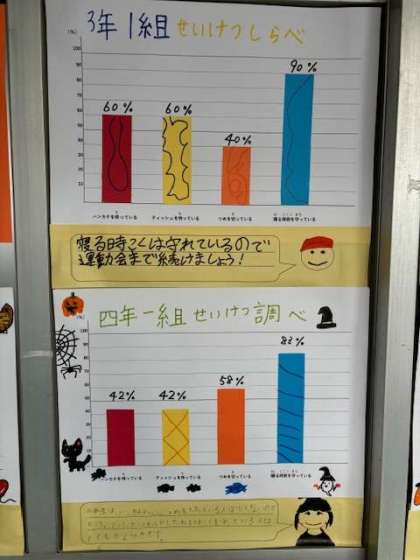 3年1組 せいけつしらべ
(%)
100
90
80
70
60
50
40
30
20
10
0
60%
60%
40%
90%
ハンカチを持っている
ティッシュを持っている
つめを切っている
寝る時刻を守っている
寝る時こくは守れているので
運動会まで続けましょう!
四年一組 せいけつ調べ
(%)
42%
42%
58%
83%
ハンカチを持っている
ティッシュを持っている
つめを切っている
寝る時刻を守っている